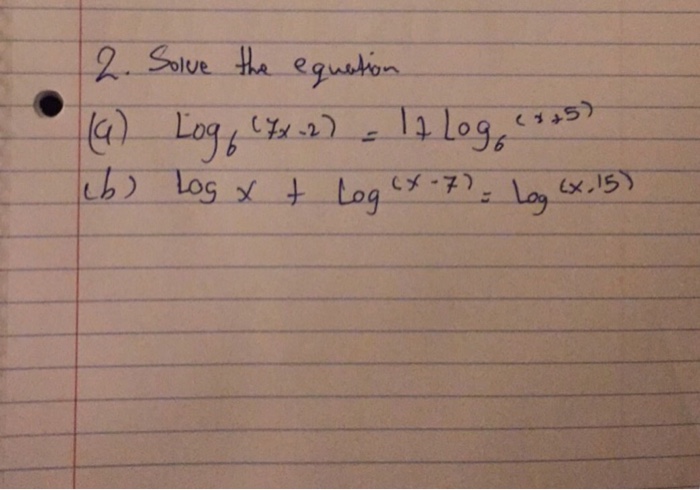 2. Solve the equation
(a) Log₆ (7x-2) = 1+ Log₆ (x+5)
(b) Log x + Log (x-7) = Log (x-15)